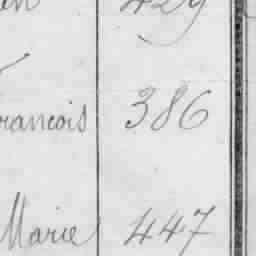 429
rancois 386
Marie 447